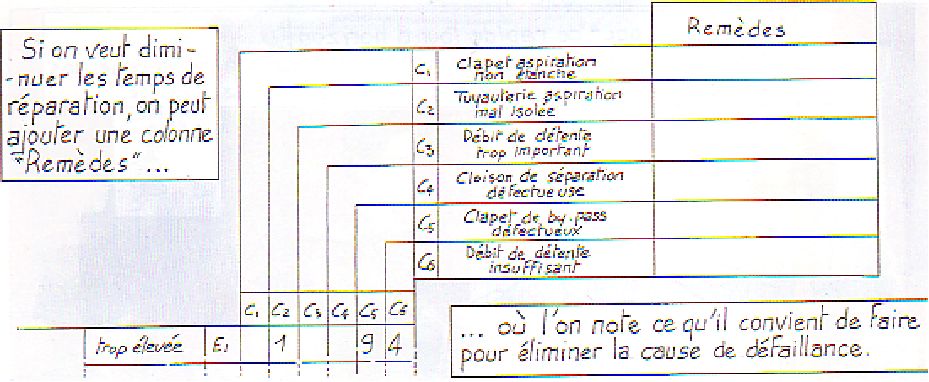 Remèdes
Si on veut dimi-
-nuer les temps de
réparation, on peut
ajouter une colonne
"Remèdes"...
C1 Clapet aspiration
non étanche
C2 Tuyauterie aspiration
mal isolée
C3 Débit de détente
trop important
C4 Cloison de séparation
défectueuse
C5 Clapet de by-pass
défectueux
C6 Débit de détente
insuffisant
C1 C2 C3 C4 C5 C6
trop élevée E1 1 9 4
... où l'on note ce qu'il convient de faire
pour éliminer la cause de défaillance.